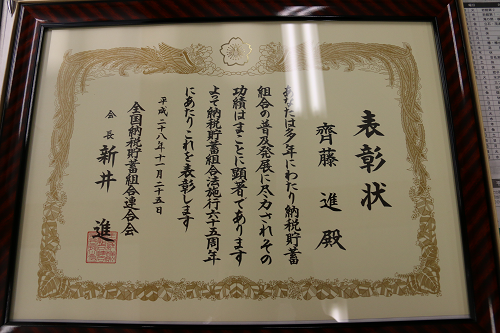 表彰状
齊藤 進 殿
あなたは多年にわたり納税貯蓄
組合の普及発展に尽力されその
功績はまことに顕著であります
よって納税貯蓄組合法施行六十五周年
にあたりこれを表彰します
平成二十八年十一月二十五日
全国納税貯蓄組合連合会
会長 新井 進